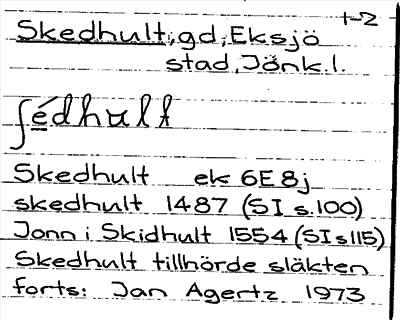 1-2
Skedhult, gd, Eksjö
stad, Jönk.l.
ʃédhult
Skedhult ek 6E8j
skedhult 1487 (SI s.100)
Jonn i Skidhult 1554 (SI s115)
Skedhult tillhörde släkten
forts: Jan Agertz 1973